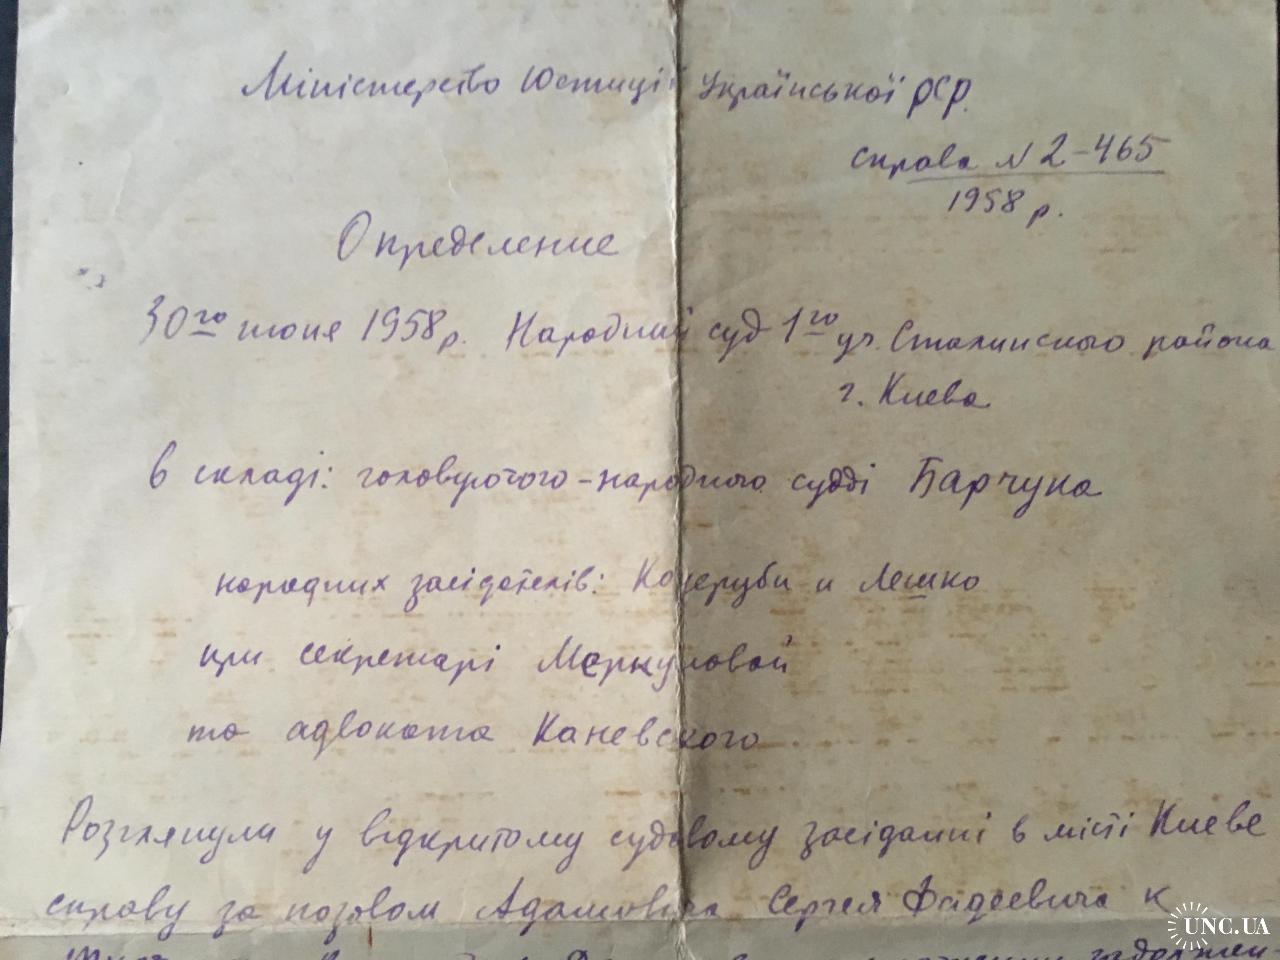 Міністерство Юстиції Української РСР.
справа N 2-465
1958 р.
Определение
30го июня 1958 р. Народний суд 1го уч. Сталинского района
г. Киева
в складі: головуючого - народного судді Барчука
народних засідателів: Коцеруби и Лешко
при секретарі Меркуловой
та адвоката Каневского
Розглянули у відкритому судовому засіданні в місті Киеве
справу за позовом Адамовича Сергея Фадеевича к
UNC.UA